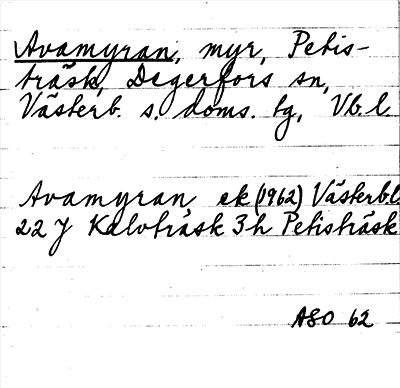 Avamyran, myr, Petis-
träsk, Degerfors sn,
Västerb. s. doms. tg, Vb. l.
Avamyran, ek (1962) Västerb.l
22 J Kalvträsk 3 h Petisträsk
ASO 62